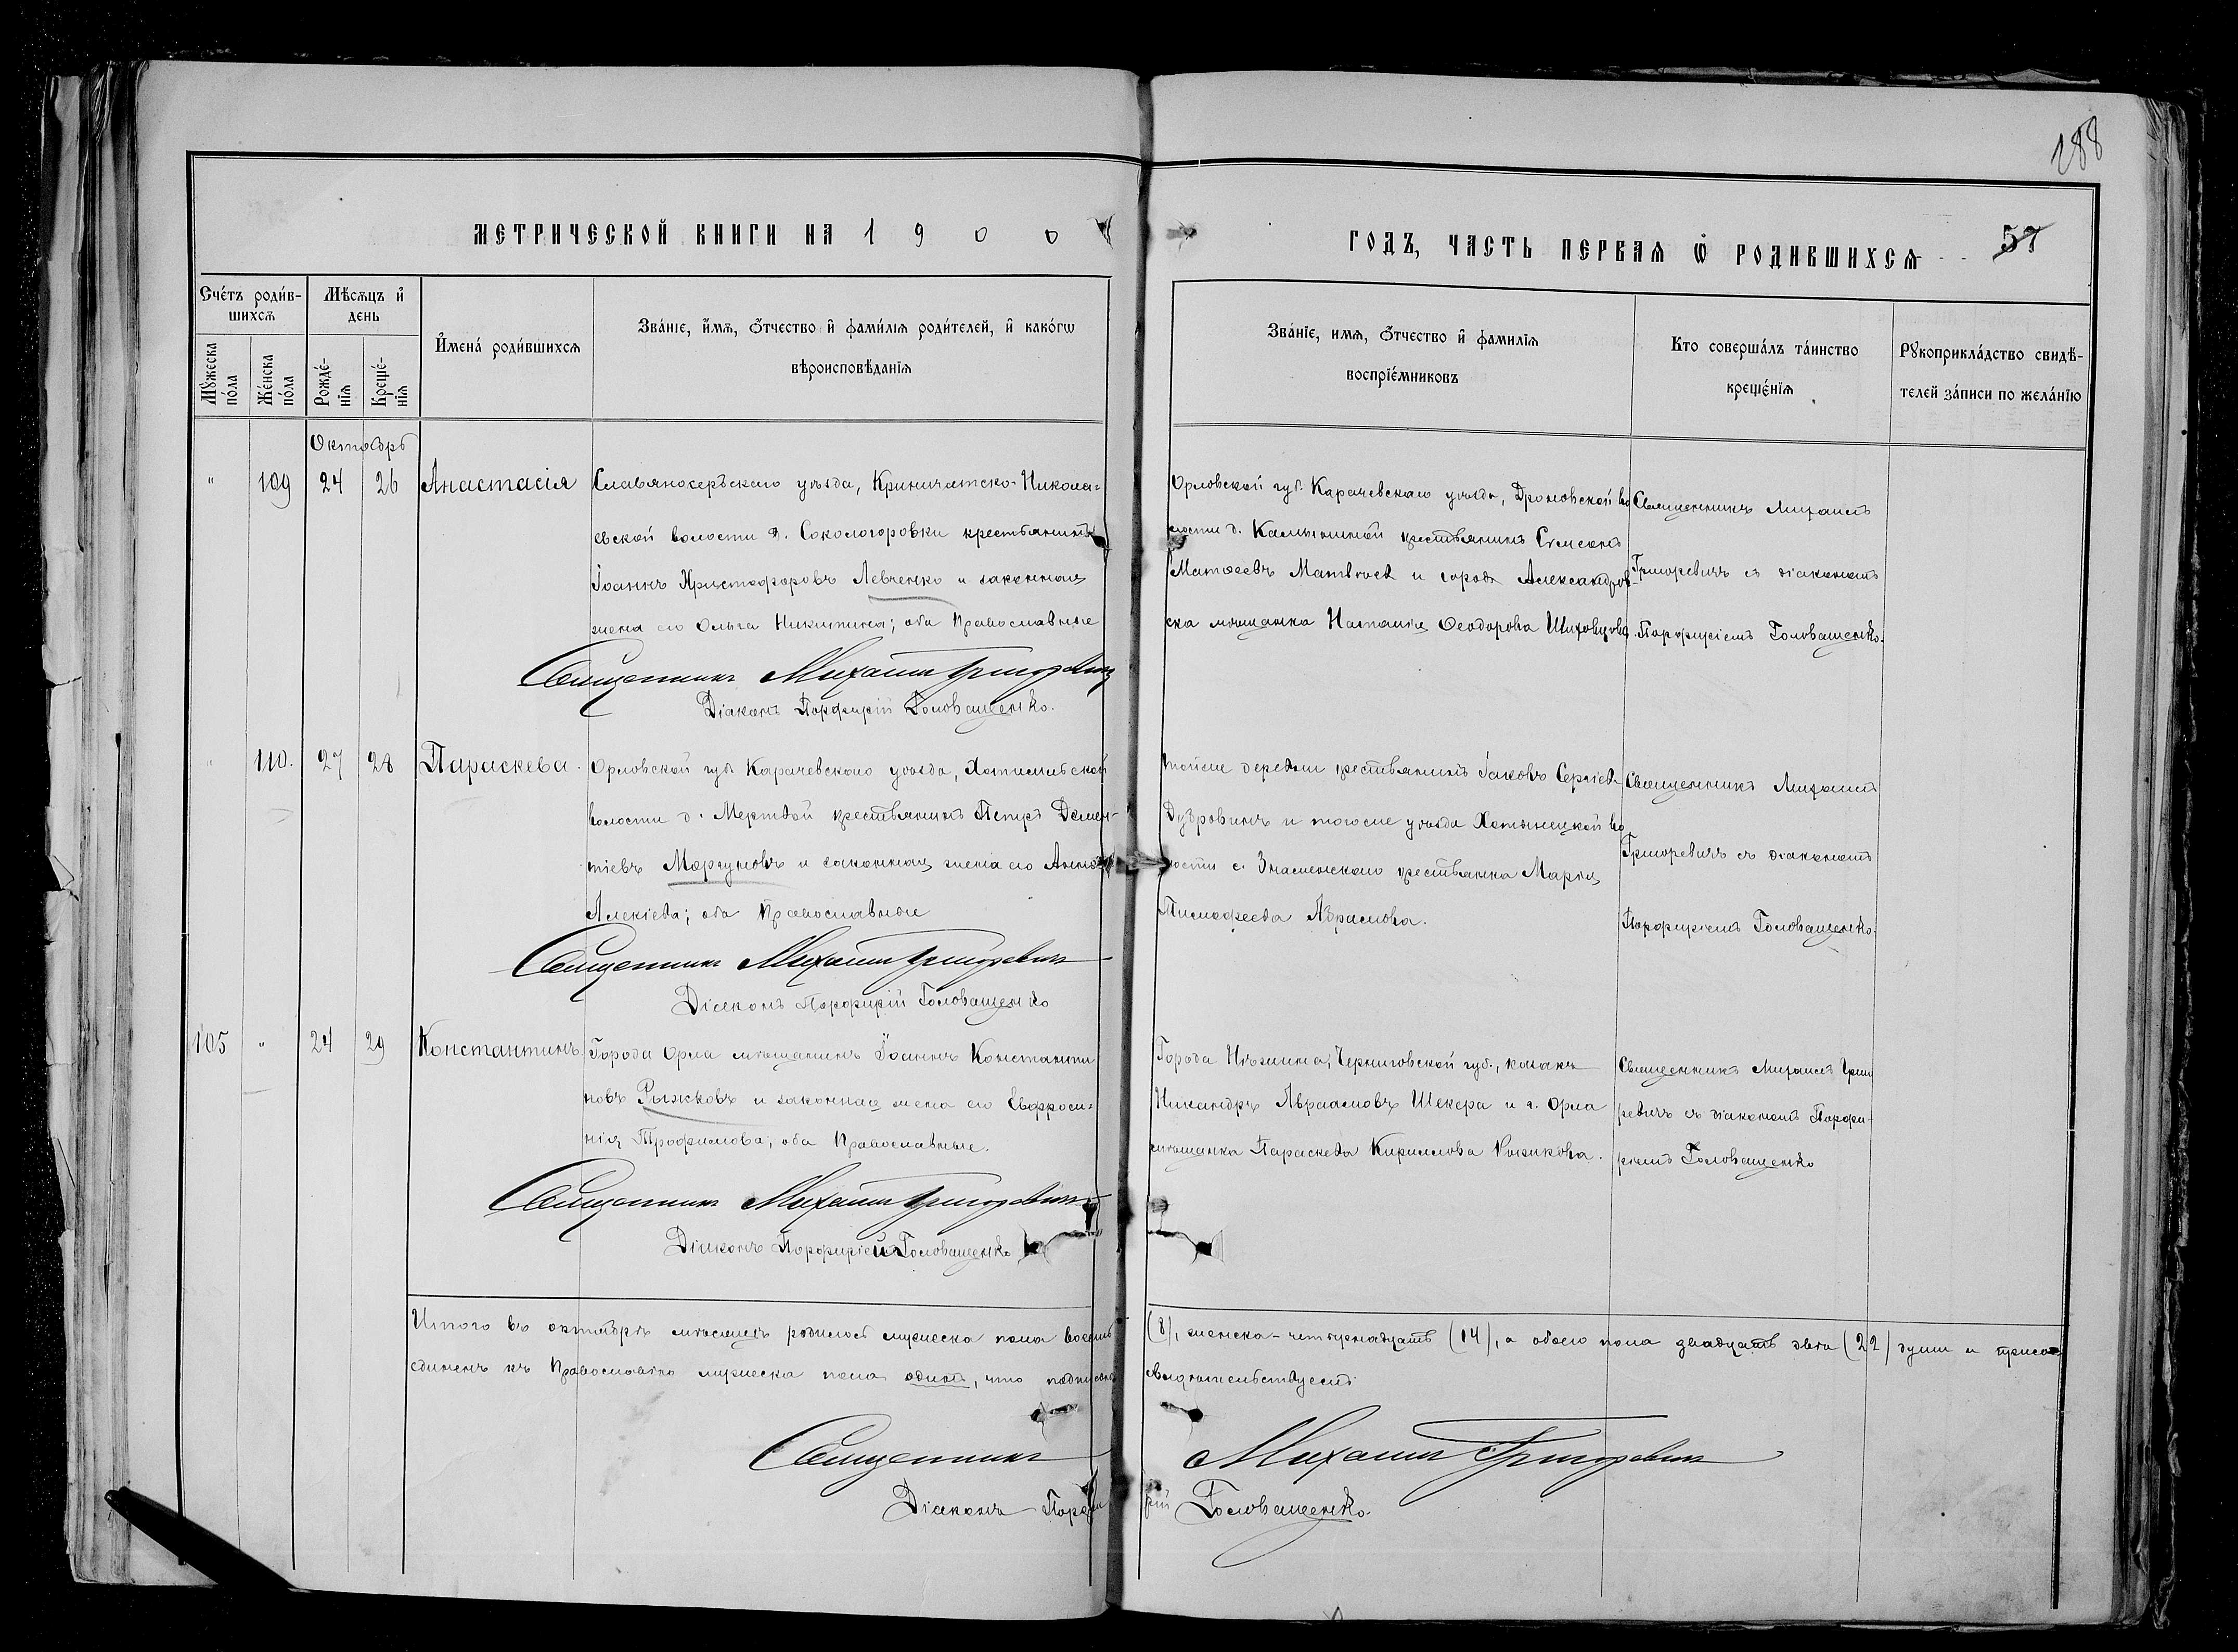 288
МЕТРИЧЕСКОЙ КНИГИ НА 1900
ГОДЪ, ЧАСТЬ ПЕРВАЯ Ѡ РОДИВШИХСЯ
57
Счетъ родив-
шихся
Мѣсяцъ и
день
Имена родившихся
Званіе, имя, отчество и фамилія родителей, и какогѡ
вѣроисповѣданія
Мужеска пола
Женска пола
Рожде-
нія
Креще-
нія
Званіе, имя, отчество и фамилія
воспріемниковъ
Кто совершалъ таинство
крещенія
Рукоприкладство свидѣ-
телей записи по желанію
Октябрь
" 109 24 26 Анастасія
Славяносербскаго уѣзда, Криничатско-Никола-
евской волости д. Сокологоровки крестьянинъ
Іоаннъ Христофоровъ Левченко и законная
жена его Ольга Никитина; оба Православные
Священникъ Михаилъ Григоревичъ
Діаконъ Порфирій Головащенко.
Орловской губ. Карачевскаго уѣзда, Дроновской во
лости д. крестьянинъ Сѵмеонъ
Матѳеевъ Матвѣевъ и города Александров-
ска мѣщанка Наталія Ѳеодорова
Священникъ Михаилъ
Григоревичъ съ діакономъ
Порфиріемъ Головащенко.
" 110. 27 28 Параскева.
Орловской губ. Карачевскаго уѣзда, Хотимльской
волости д. Мертвой крестьянинъ Петръ Демен-
тіевъ Моргуновъ и законная жена его Анна
Алексіева; оба Православные
Священникъ Михаилъ Григоревичъ
Діаконъ Порфирій Головащенко
тойже деревни крестьянинъ Іаковъ Сергіевъ
Дубровинъ и тогоже уѣзда Хотынецкой во
лости с. Знаменскаго крестьянка Марія
Тимофеева Абрамова.
Священникъ Михаилъ
Григоревичъ съ діакономъ
Порфиріемъ Головащенко.
105 " 24 29 Константинъ
Города Орла мѣщанинъ Іоаннъ Константи
новъ Рыжковъ и законная жена его Евфроси-
нія Трофимова; оба Православные.
Священникъ Михаилъ Григоревичъ
Діаконъ Порфирій Головащенко
Города Нѣжина, Черниговской губ., казакъ
Никандръ Авраамовъ Шекера и г. Орла
мѣщанка Параскева Кириллова Рыжкова.
Священникъ Михаилъ Григо
ревичъ съ діакономъ Порфи-
ріемъ Головащенко
Итого въ октябрѣ мѣсяцѣ родилось мужеска пола восемь (8), женска - четырнадцать (14), а обоего пола двадцать двѣ (22) души и присо-
единенъ къ Православію мужеска пола одинъ, что подписомъ свидѣтельствуемъ
Священникъ Михаилъ Григоревичъ
Діаконъ Порфирій Головащенко.